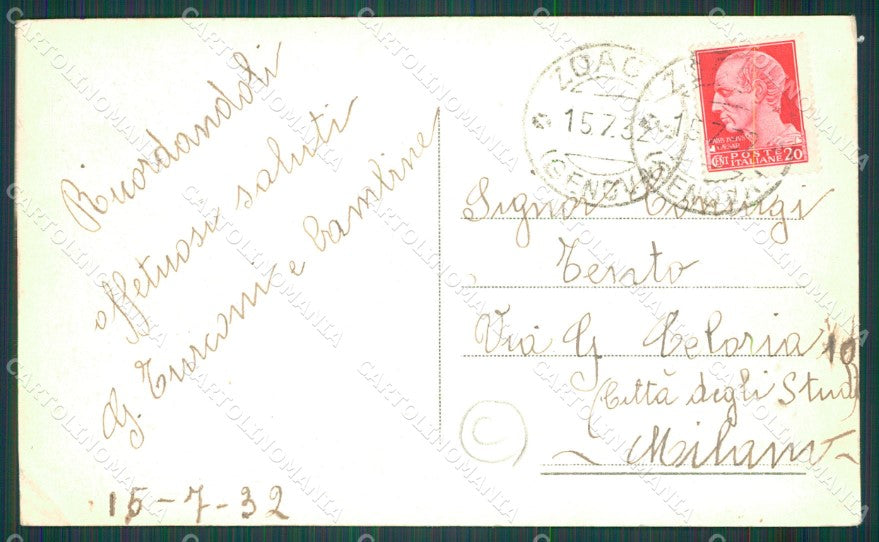 Ricordandoli
affetuosi saluti
G. Turconi e bambine
15-7-32
ZOAG
15.7.3
GENOV
POSTE
ITALIANE
CENT 20
CAESAR
Signor
Via G Celoria 10
(Città degli Stud
Milano
CARTOLINOMANIA